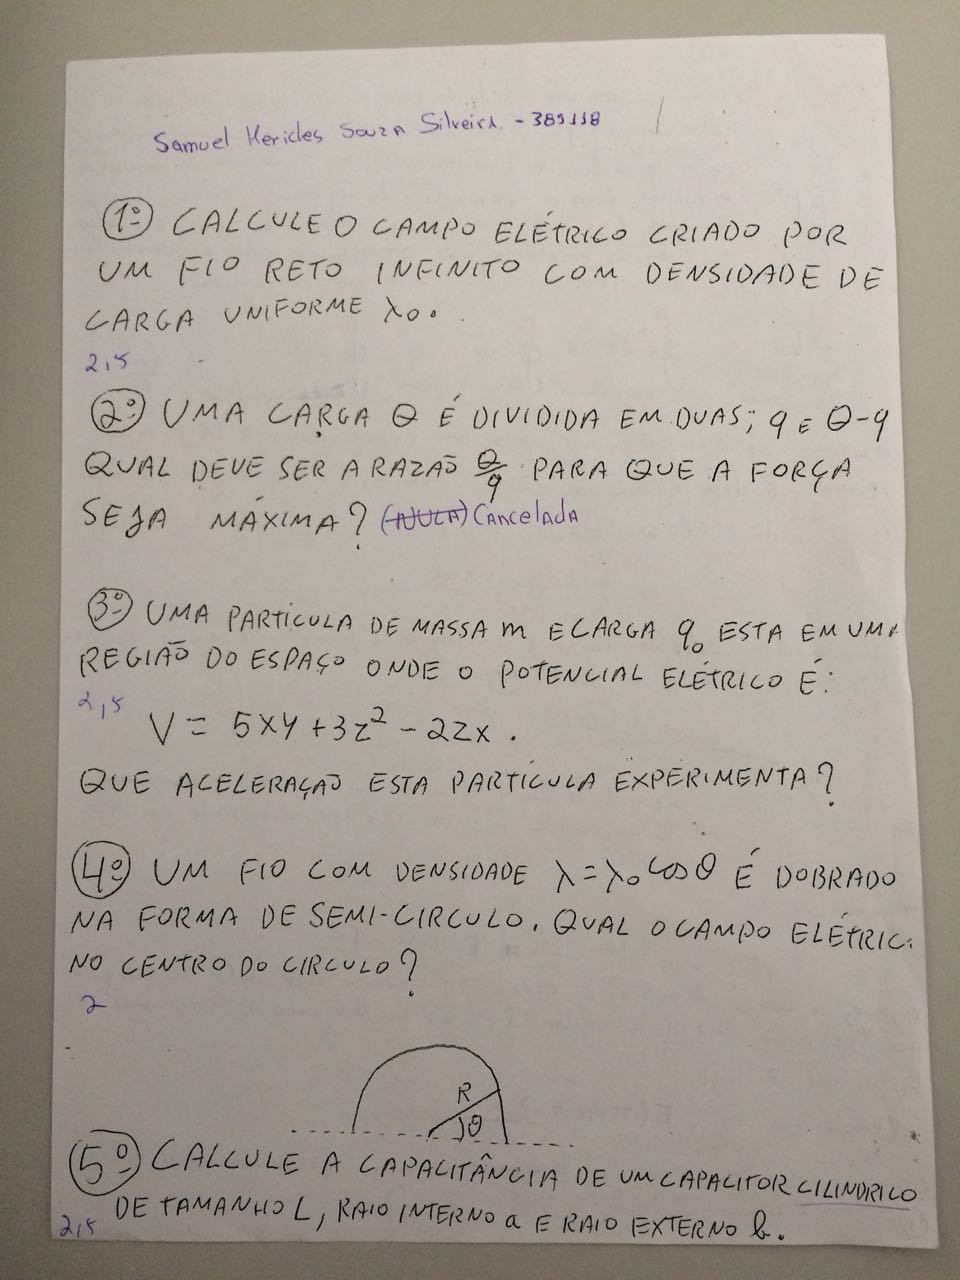 Samuel Hericles Souza Silveira - 389118
1º CALCULE O CAMPO ELÉTRICO CRIADO POR
UM FIO RETO INFINITO COM DENSIDADE DE
CARGA UNIFORME λ0.
2,5
2º UMA CARGA Q É DIVIDIDA EM DUAS; q E Q-q
QUAL DEVE SER A RAZÃO Q/q PARA QUE A FORÇA
SEJA MÁXIMA? (NULA) CANCELADA
3º UMA PARTÍCULA DE MASSA m E CARGA q0 ESTA EM UMA
REGIÃO DO ESPAÇO ONDE O POTENCIAL ELÉTRICO É:
2,5
V = 5xy + 3z² - 2zx.
QUE ACELERAÇÃO ESTA PARTÍCULA EXPERIMENTA?
4º UM FIO COM DENSIDADE λ=λ0 cosθ É DOBRADO
NA FORMA DE SEMI-CIRCULO. QUAL O CAMPO ELÉTRIC
NO CENTRO DO CIRCULO?
2
R
θ
5º CALCULE A CAPACITÂNCIA DE UM CAPACITOR CILINDRICO
DE TAMANHO L, RAIO INTERNO a E RAIO EXTERNO b.
2,5